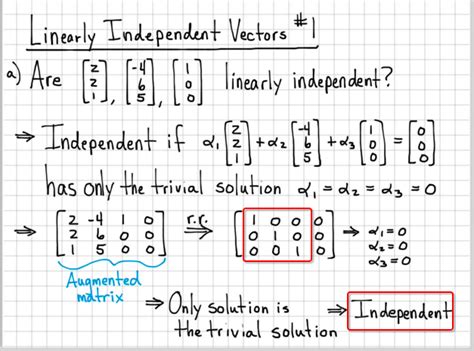 Linearly Independent Vectors #1
a) Are [2 2 1], [-4 6 5], [1 0 0] linearly independent?
⇒ Independent if α₁[2 2 1] + α₂[-4 6 5] + α₃[1 0 0] = [0 0 0]
has only the trivial solution α₁ = α₂ = α₃ = 0
⇒ [2 -4 1 0 r.r. ⇒ [1 0 0 0 → α₁ = 0
2 6 0 0 0 1 0 0 α₂ = 0
1 5 0 0] 0 0 1 0] α₃ = 0
Augmented
matrix
⇒ Only solution is ⇒ Independent
the trivial solution